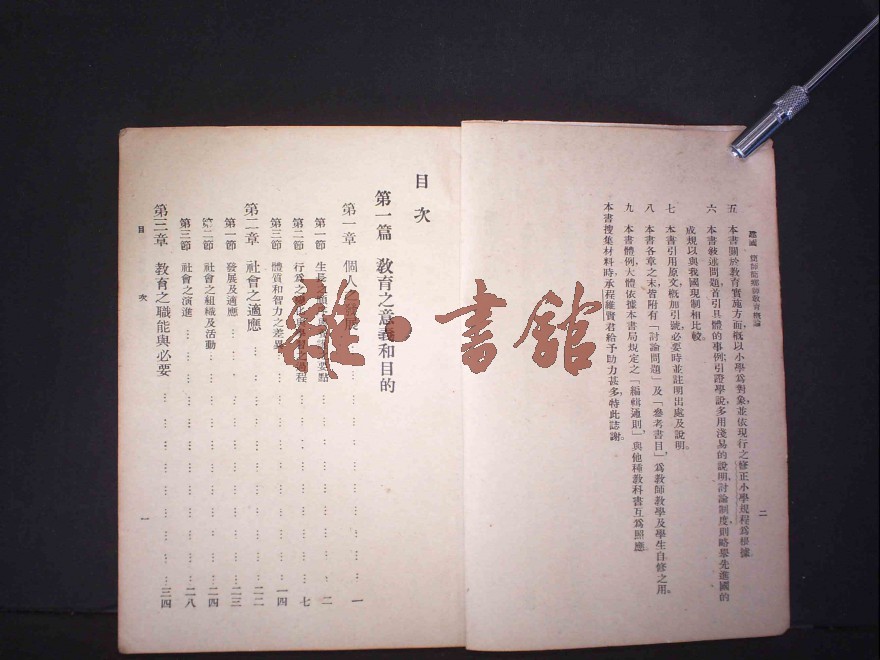 二
五 本書關於教育實施方面,槪以小學爲對象,並依現行之修正小學規程爲根據。
六 本書敍述問題,首引具體的事例;引證學說,多用淺易的說明;討論制度,則略舉先進國的
成規以與我國現制相比較。
七 本書引用原文,槪加引號,必要時並註明出處及說明。
八 本書各章之末,皆附有「討論問題」及「參考書目」,爲教師教學及學生自修之用。
九 本書體例,大體依據本書局規定之「編輯通則」,與他種教科書互爲照應。
本書搜集材料時,承程維賢君給予助力甚多,特此誌謝。
目次
第一篇 教育之意義和目的
第一章 個人之發展 一
第一節 生長之 要點 二
第二節 行爲之 過程 七
第三節 體質和智力之差異 一四
第二章 社會之適應 二二
第一節 發展及適應 二三
第二節 社會之組織及活動 二四
第三節 社會之演進 二八
第三章 教育之職能與必要 三四
目次
一
雜·書館